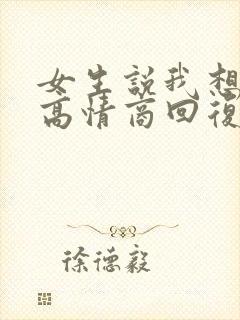 女生説我想
高情商回復
徐德毅